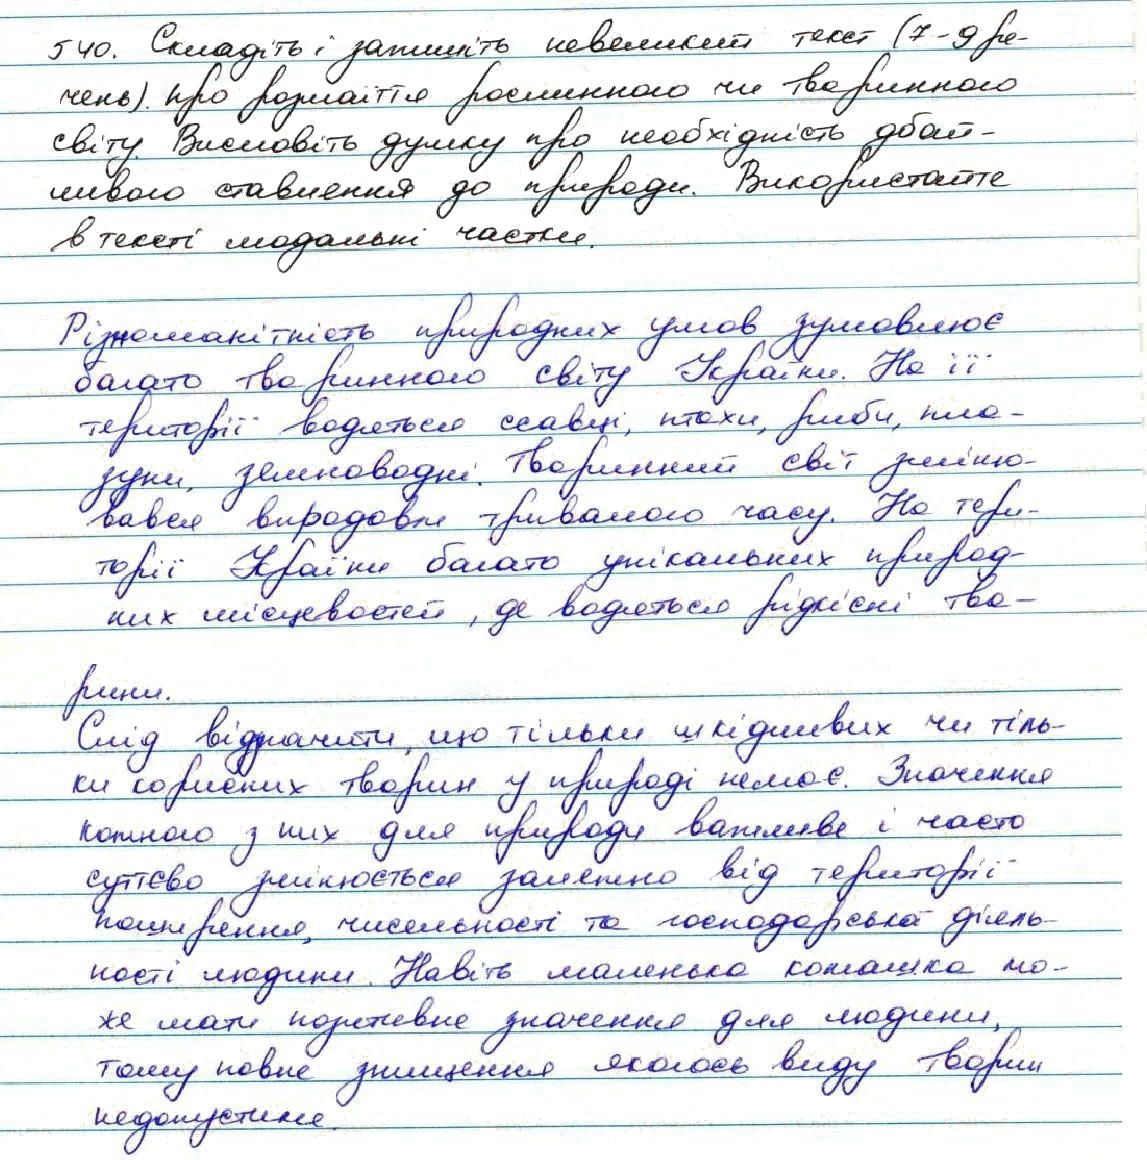 540. Складіть і запишіть невеликий текст (7-9 ре-
чень). про розмаїття рослинного чи тваринного
світу. Висловіть думку про необхідність дбай-
ливого ставлення до природи. Використайте
в тексті модальні частки.
Різноманітність природних умов зумовлює
багато тваринного світу України. На її
території водяться ссавці, птахи, риби, пла-
зуни, земноводні. Тваринний світ зміню-
вався впродовж тривалого часу. На тери-
торії України багато унікальних природ-
них місцевостей, де водяться рідкісні тва-
рини.
Слід відзначити, що тільки шкідливих чи тіль-
ки корисних тварин у природі немає. Значення
кожного з них для природи важливе і часто
суттєво змінюється залежно від території
поширення, чисельності та господарської діяль-
ності людини. Навіть маленька комашка мо-
же мати позитивне значення для людини,
тому повне знищення якогось виду тварин
недопустиме.